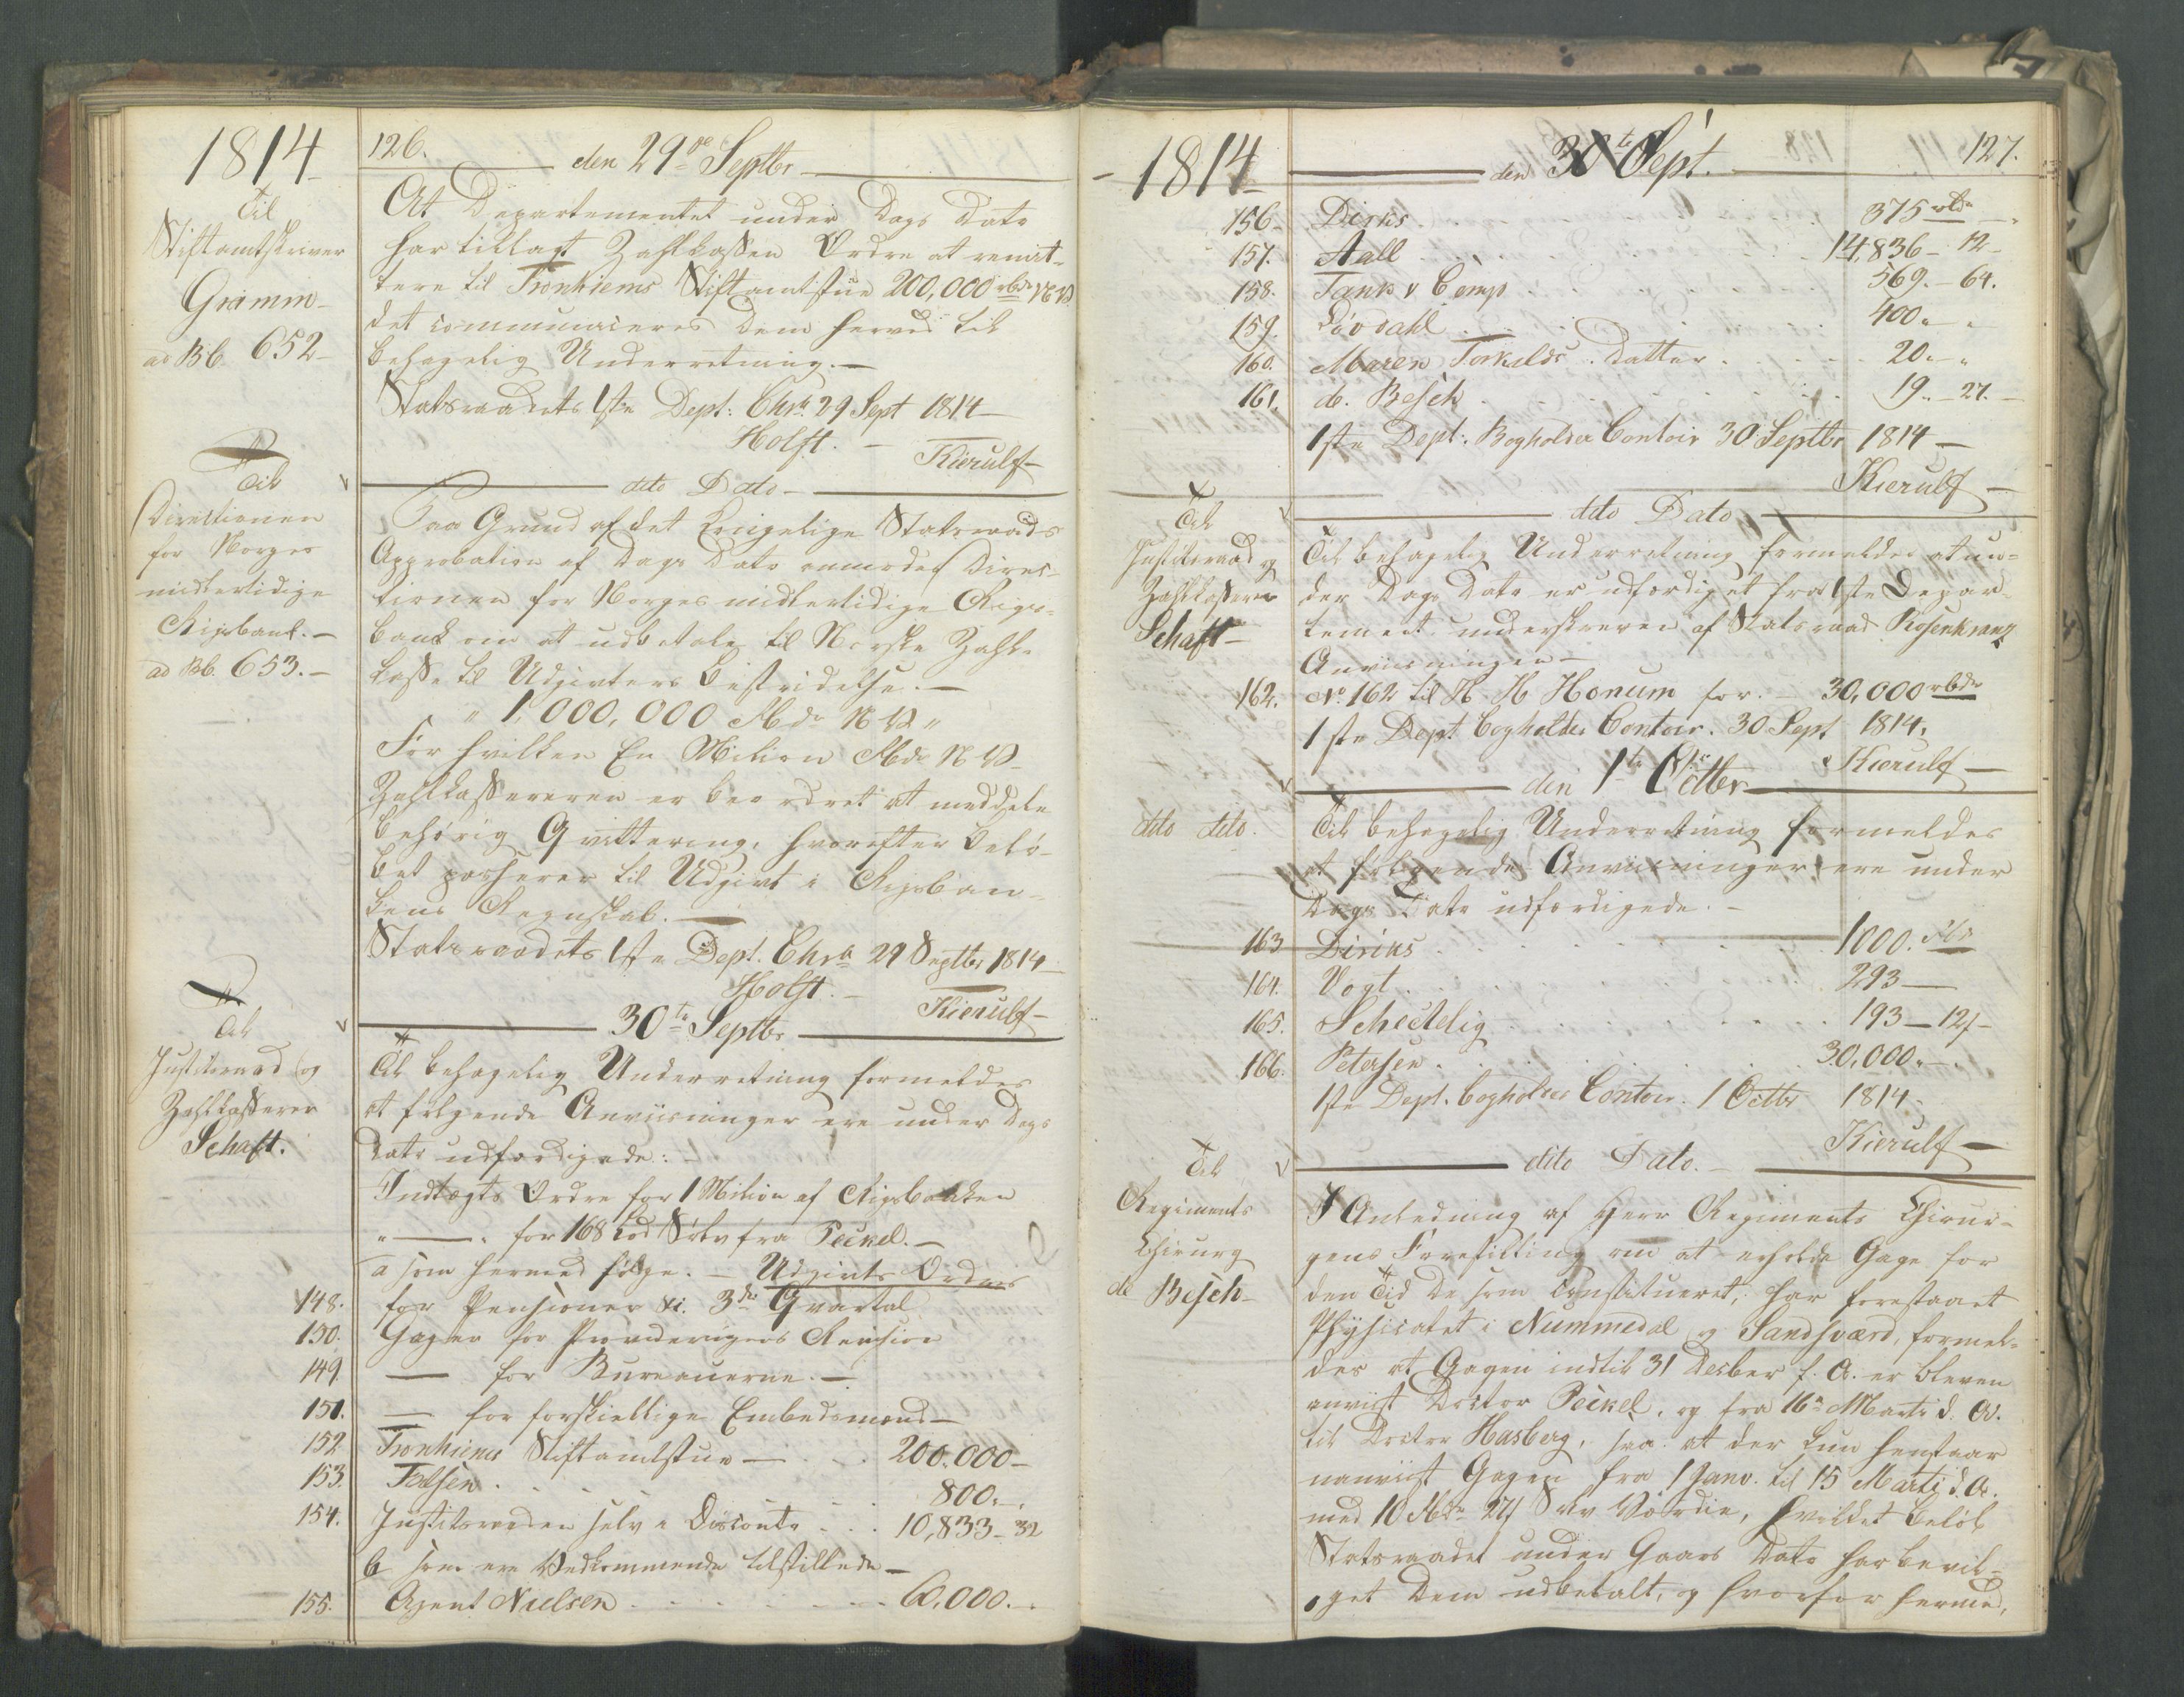 1814
126.
den 29de Septbr
Til
Stiftamtskriver
Gramm
ad Bb. 652
At Departementet under Dags Dato
har tillagt Zahlkassen Ordre at remit-
tere til Tronhiems Stiftamtstue 200,000 rbdr NV
det communiceres Dem herved til
behagelig Underretning.
Statsraadets 1ste Dept: Chra 29 Sept 1814
Holst.
Kierulf
dito Dato
Til
Directionen
for Norges
midlertidige
Rigsbank.
ad Bb. 653.
Paa Grund af det kongelige Statsraads
Approbation af Dags Dato anmodes Direc-
tionen for Norges midlertidige Rigs-
bank om at udbetale til Norske Zahl-
kasse til Udgivters Bestridelse.
" 1,000,000 Rbdr N V "
For hvilken En Million Rbdr N V
Zahlkassereren er beordret at meddele
behörig Qvittering, hvorefter Belö-
bet passerer til Udgivt i Rigsban-
kens Regnskab.
Statsraadets 1ste Dept. Chra 29 Septbr 1814
Holst.
Kierulf
30te Septbr
Til
Justitsraad og
Zahlkasserer
Schaft.
Til behagelig Underretning formeldes
at fölgende Anviisninger ere under Dags
Dato udfærdigede:
Indtægts Ordre for 1 Million af Rigsbanken
" — " for 168 Lod Sölv fra Peckel.
a som hermed fölge. — Udgivts Ordres
148. for Pensioner &c. 3die Qvartal
150. Gager for Provideringens Revision
149. — for Bureauerne.
151. — for forskiellige Embedsmænd
152. Tronhiems Stiftamtstue 200.000
153. Falsen 800.
154. Justitsraaden selv i Disconto 10,833 - 32
b som ere Vedkommende tilstillede
155. Agent Nielsen 6,000.
1814
127.
den 30te Sept.
156. Diriks 375 rbdr
157. Aall 14,836 - 12
158. Tank & Comp 569. - 64.
159. Lövdahl 400.
160. Maren Torkilds Datter 20.
161. de. Besch 19. - 27.
1ste Dept. Bogholder Contoir 30 Septbr 1814
Kierulf
dito Dato
Til
Justitsraad og
Zahlkasserer
Schaft
Til behagelig Underretning formeldes at un-
der Dags Dato er udfærdiget fra 1ste Depar-
tement underskreven af Statsraad Rosenkranz
Anviisningen
162. No 162 til H H Honum for 30,000 rbdr
1ste Dept Bogholder Contoir. 30 Sept 1814.
Kierulf
den 1te Octbr
dito dito.
Til behagelig Underretning formeldes
at fölgende Anviisninger ere under
Dags Dato udfærdigede.
163 Diriks 1000. Rbdr
164. Vogt 293
165. Scheitelig 193 - 12
166. Petersen 30,000.
1ste Dept. Bogholder Contoir. 1 Octbr 1814
Kierulf
dito Dato.
Til
Regiments
Chirurg
de Besch
I Anledning af Herr Regiments Chirur-
gens Forestilling om at erholde Gage for
den Tid De som constitueret, har forestaaet
Physicatet i Nummedal og Sandsværd, formel-
des at Gagen indtil 31 Decber f. A. er bleven
anviist Doctor Peckel, og fra 16de Marti d. A.
til Doctor Hasberg, saa at der kun henstaaer
uanviist Gagen fra 1 Janv. til 15 Marti d. A.
med 10 Rbdr 27 S rev Værdie, hvilket Belöb
Statsraadet under Gaars Dato har bevil-
get Dem udbetalt, og hvorfor hermed,